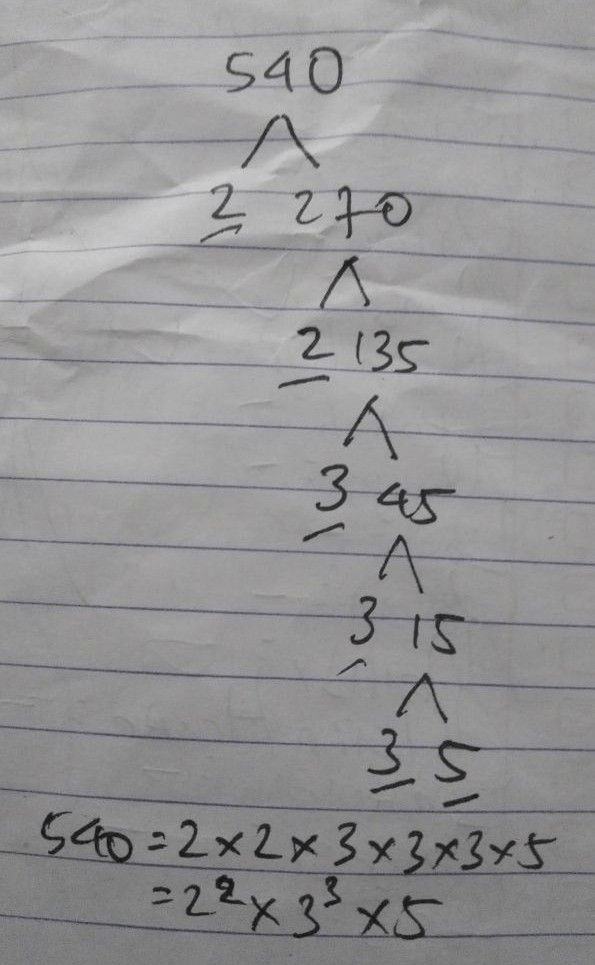 540
2 270
2 135
3 45
3 15
3 5
540=2×2×3×3×3×5
=2²×3³×5